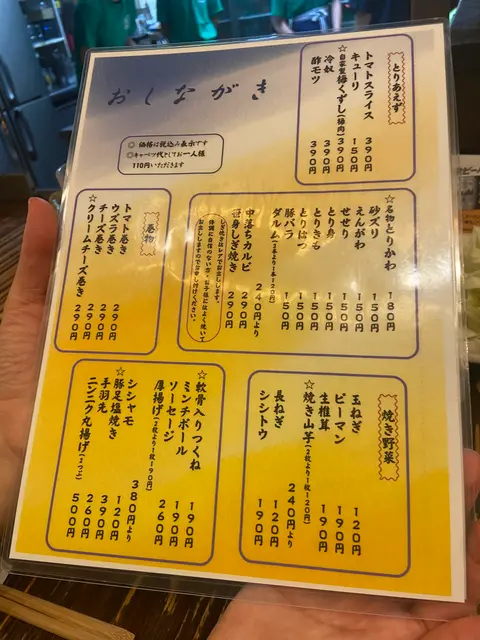 おしながき
◎価格は税込み表示です
◎キャベツ代としてお一人様
110円いただきます
とりあえず
トマトスライス 390円
キューリ 150円
☆自家製梅くずし(梅肉) 390円
冷奴 390円
酢モツ 390円
☆名物とりかわ 180円
砂ズリ 150円
えんがわ 150円
せせり 150円
とり身 150円
とりきも 150円
とりはつ 150円
豚バラ 150円
ダルム(2本より1本120円)
中落ちカルビ 240円より
☆胸身しぎ焼き 290円
290円
しぎ焼きはレアでお出しします。
体調に自信のない方、お子様にはよく焼いて
お出ししますのでお申し付けください。
巻物
トマト巻き 290円
ウズラ巻き 290円
チーズ巻き 290円
☆クリームチーズ巻き 290円
焼き野菜
玉ねぎ 120円
ピーマン 190円
生椎茸 190円
☆焼き山芋(2枚より1枚120円) 240円より
長ねぎ 120円
シシトウ 190円
☆軟骨入りつくね 190円
ミンチボール 190円
ソーセージ 260円
厚揚げ(2枚より1枚190円) 380円より
シシャモ 120円
☆豚足塩焼き 390円
手羽先 260円
ニンニク丸揚げ(2つぶ) 500円